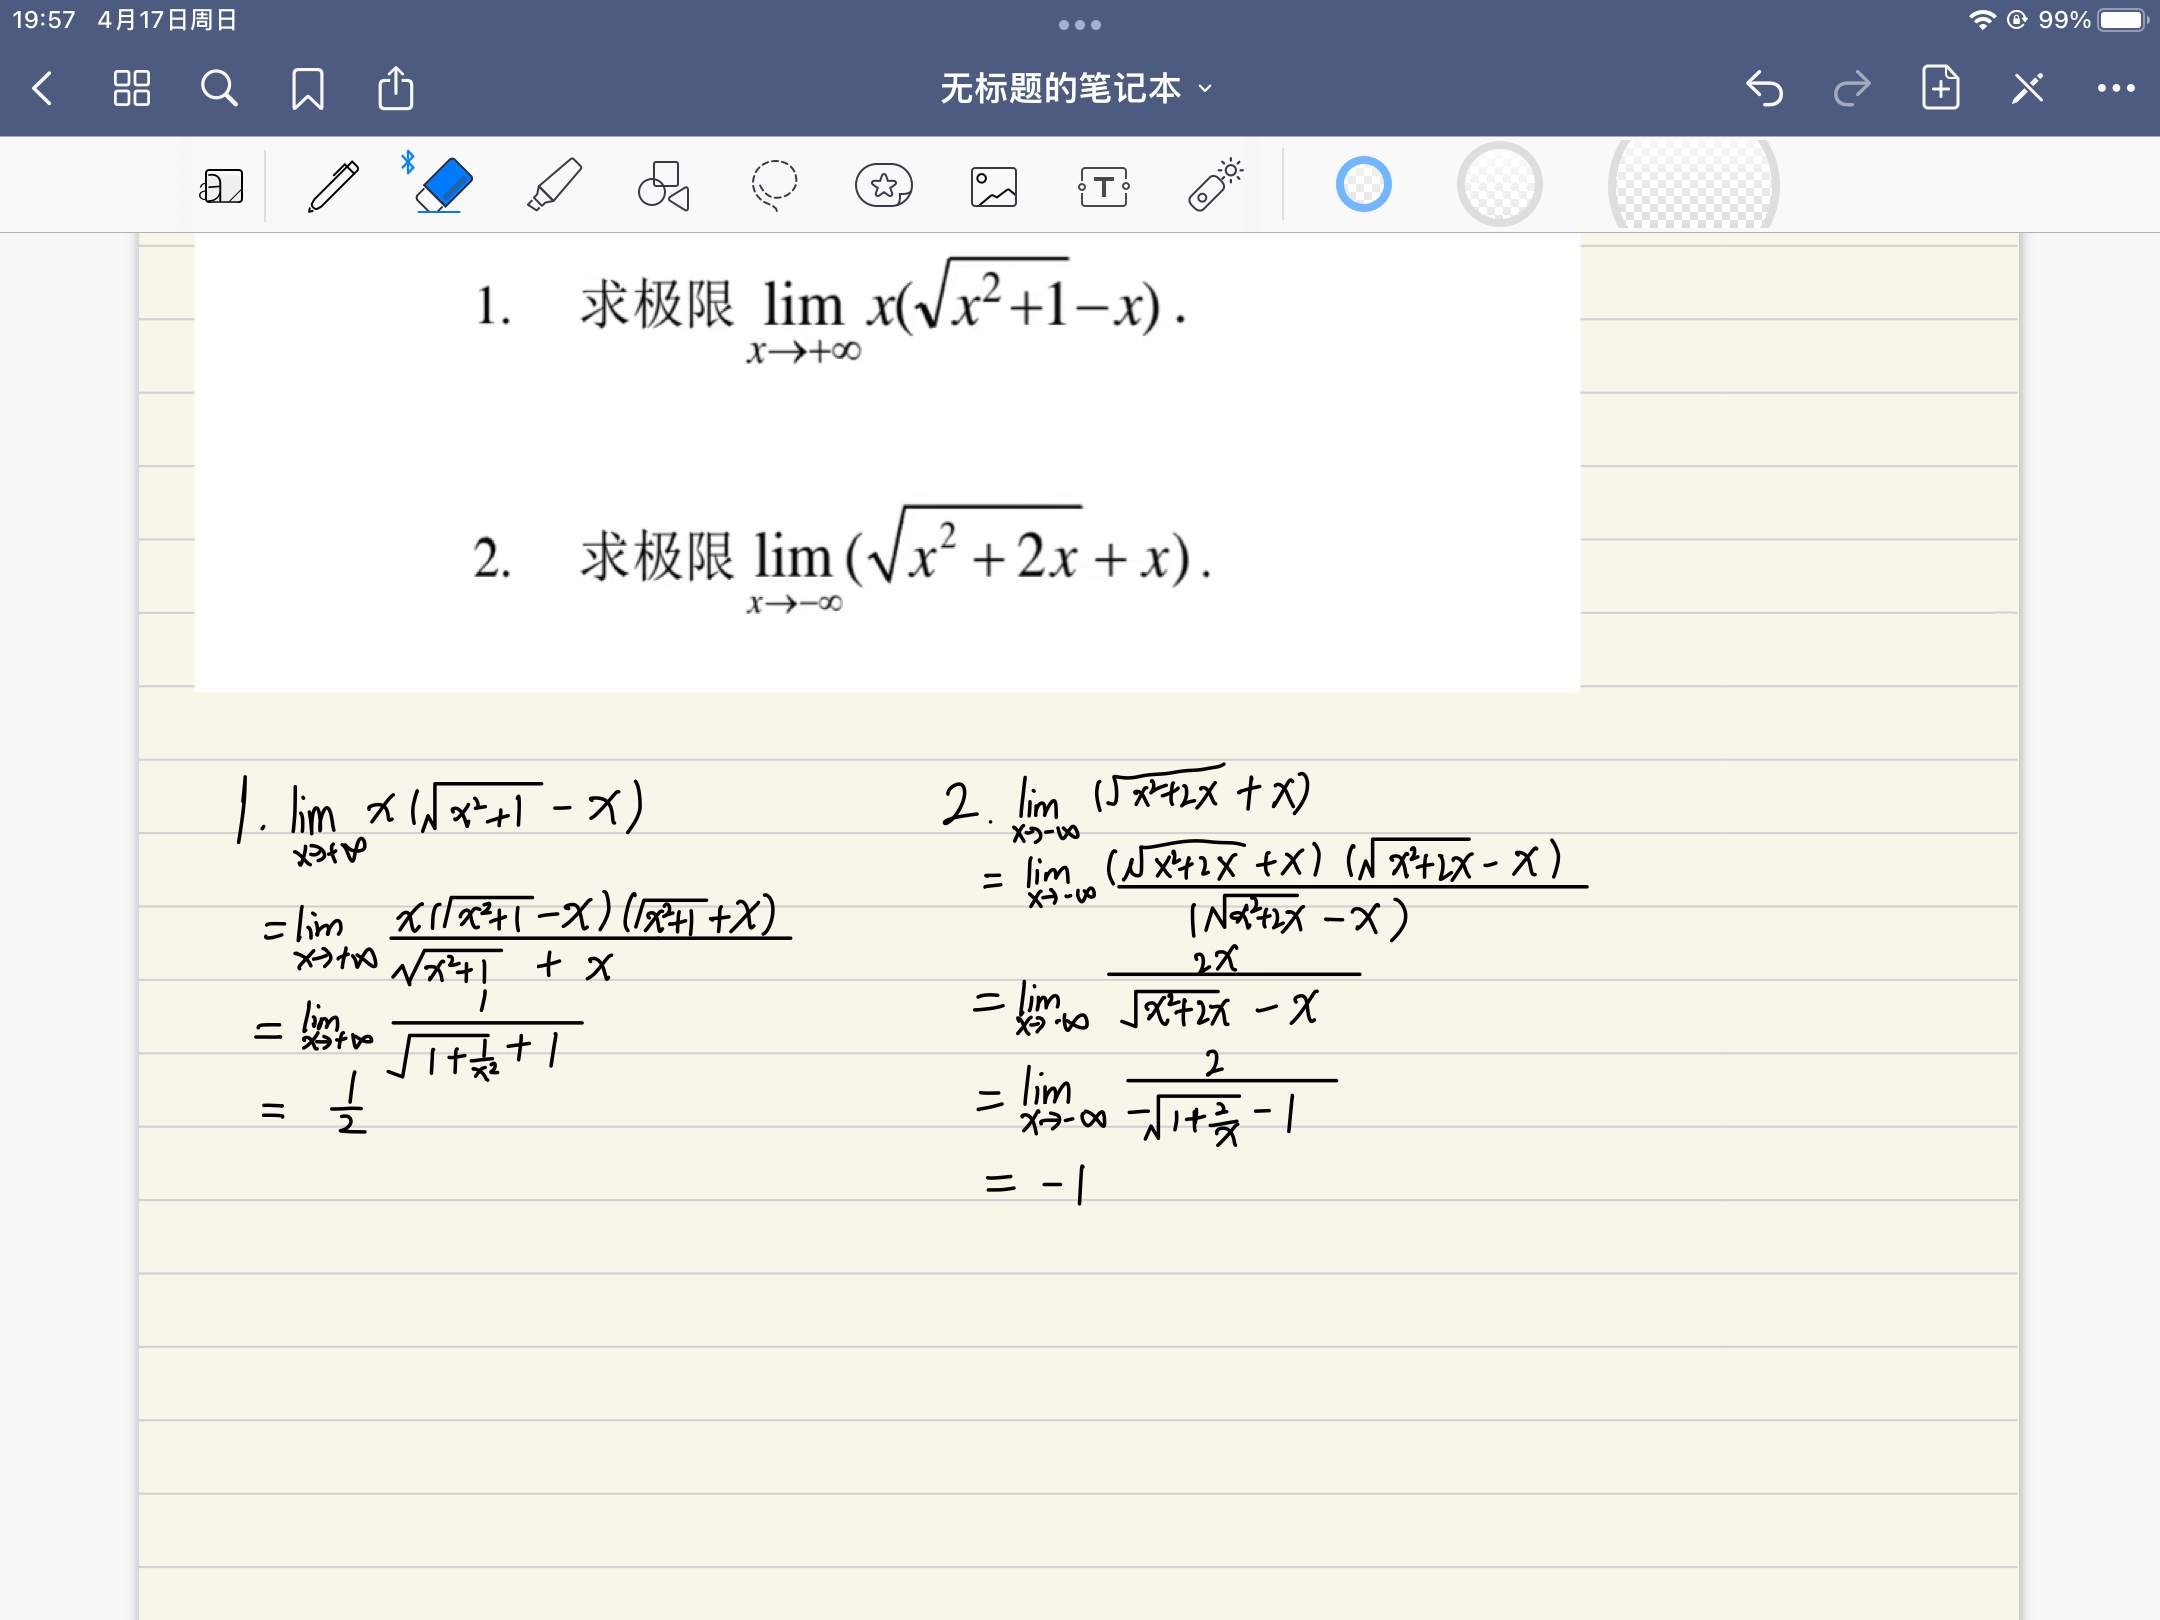 19:57 4月17日周日 99%
无标题的笔记本
a T
1. 求极限 lim x(√(x²+1)−x).
x→+∞
2. 求极限 lim (√(x²+2x)+x).
x→−∞
1. lim x(√(x²+1) − x)
x→+∞
= lim x(√(x²+1) − x)(√(x²+1) + x)
x→+∞ √(x²+1) + x
= lim 1
x→+∞ √(1+1/x²) + 1
= 1/2
2. lim (√(x²+2x) + x)
x→−∞
= lim (√(x²+2x) + x)(√(x²+2x) − x)
x→−∞ (√(x²+2x) − x)
= lim 2x
x→−∞ √(x²+2x) − x
= lim 2
x→−∞ −√(1+2/x) − 1
= −1